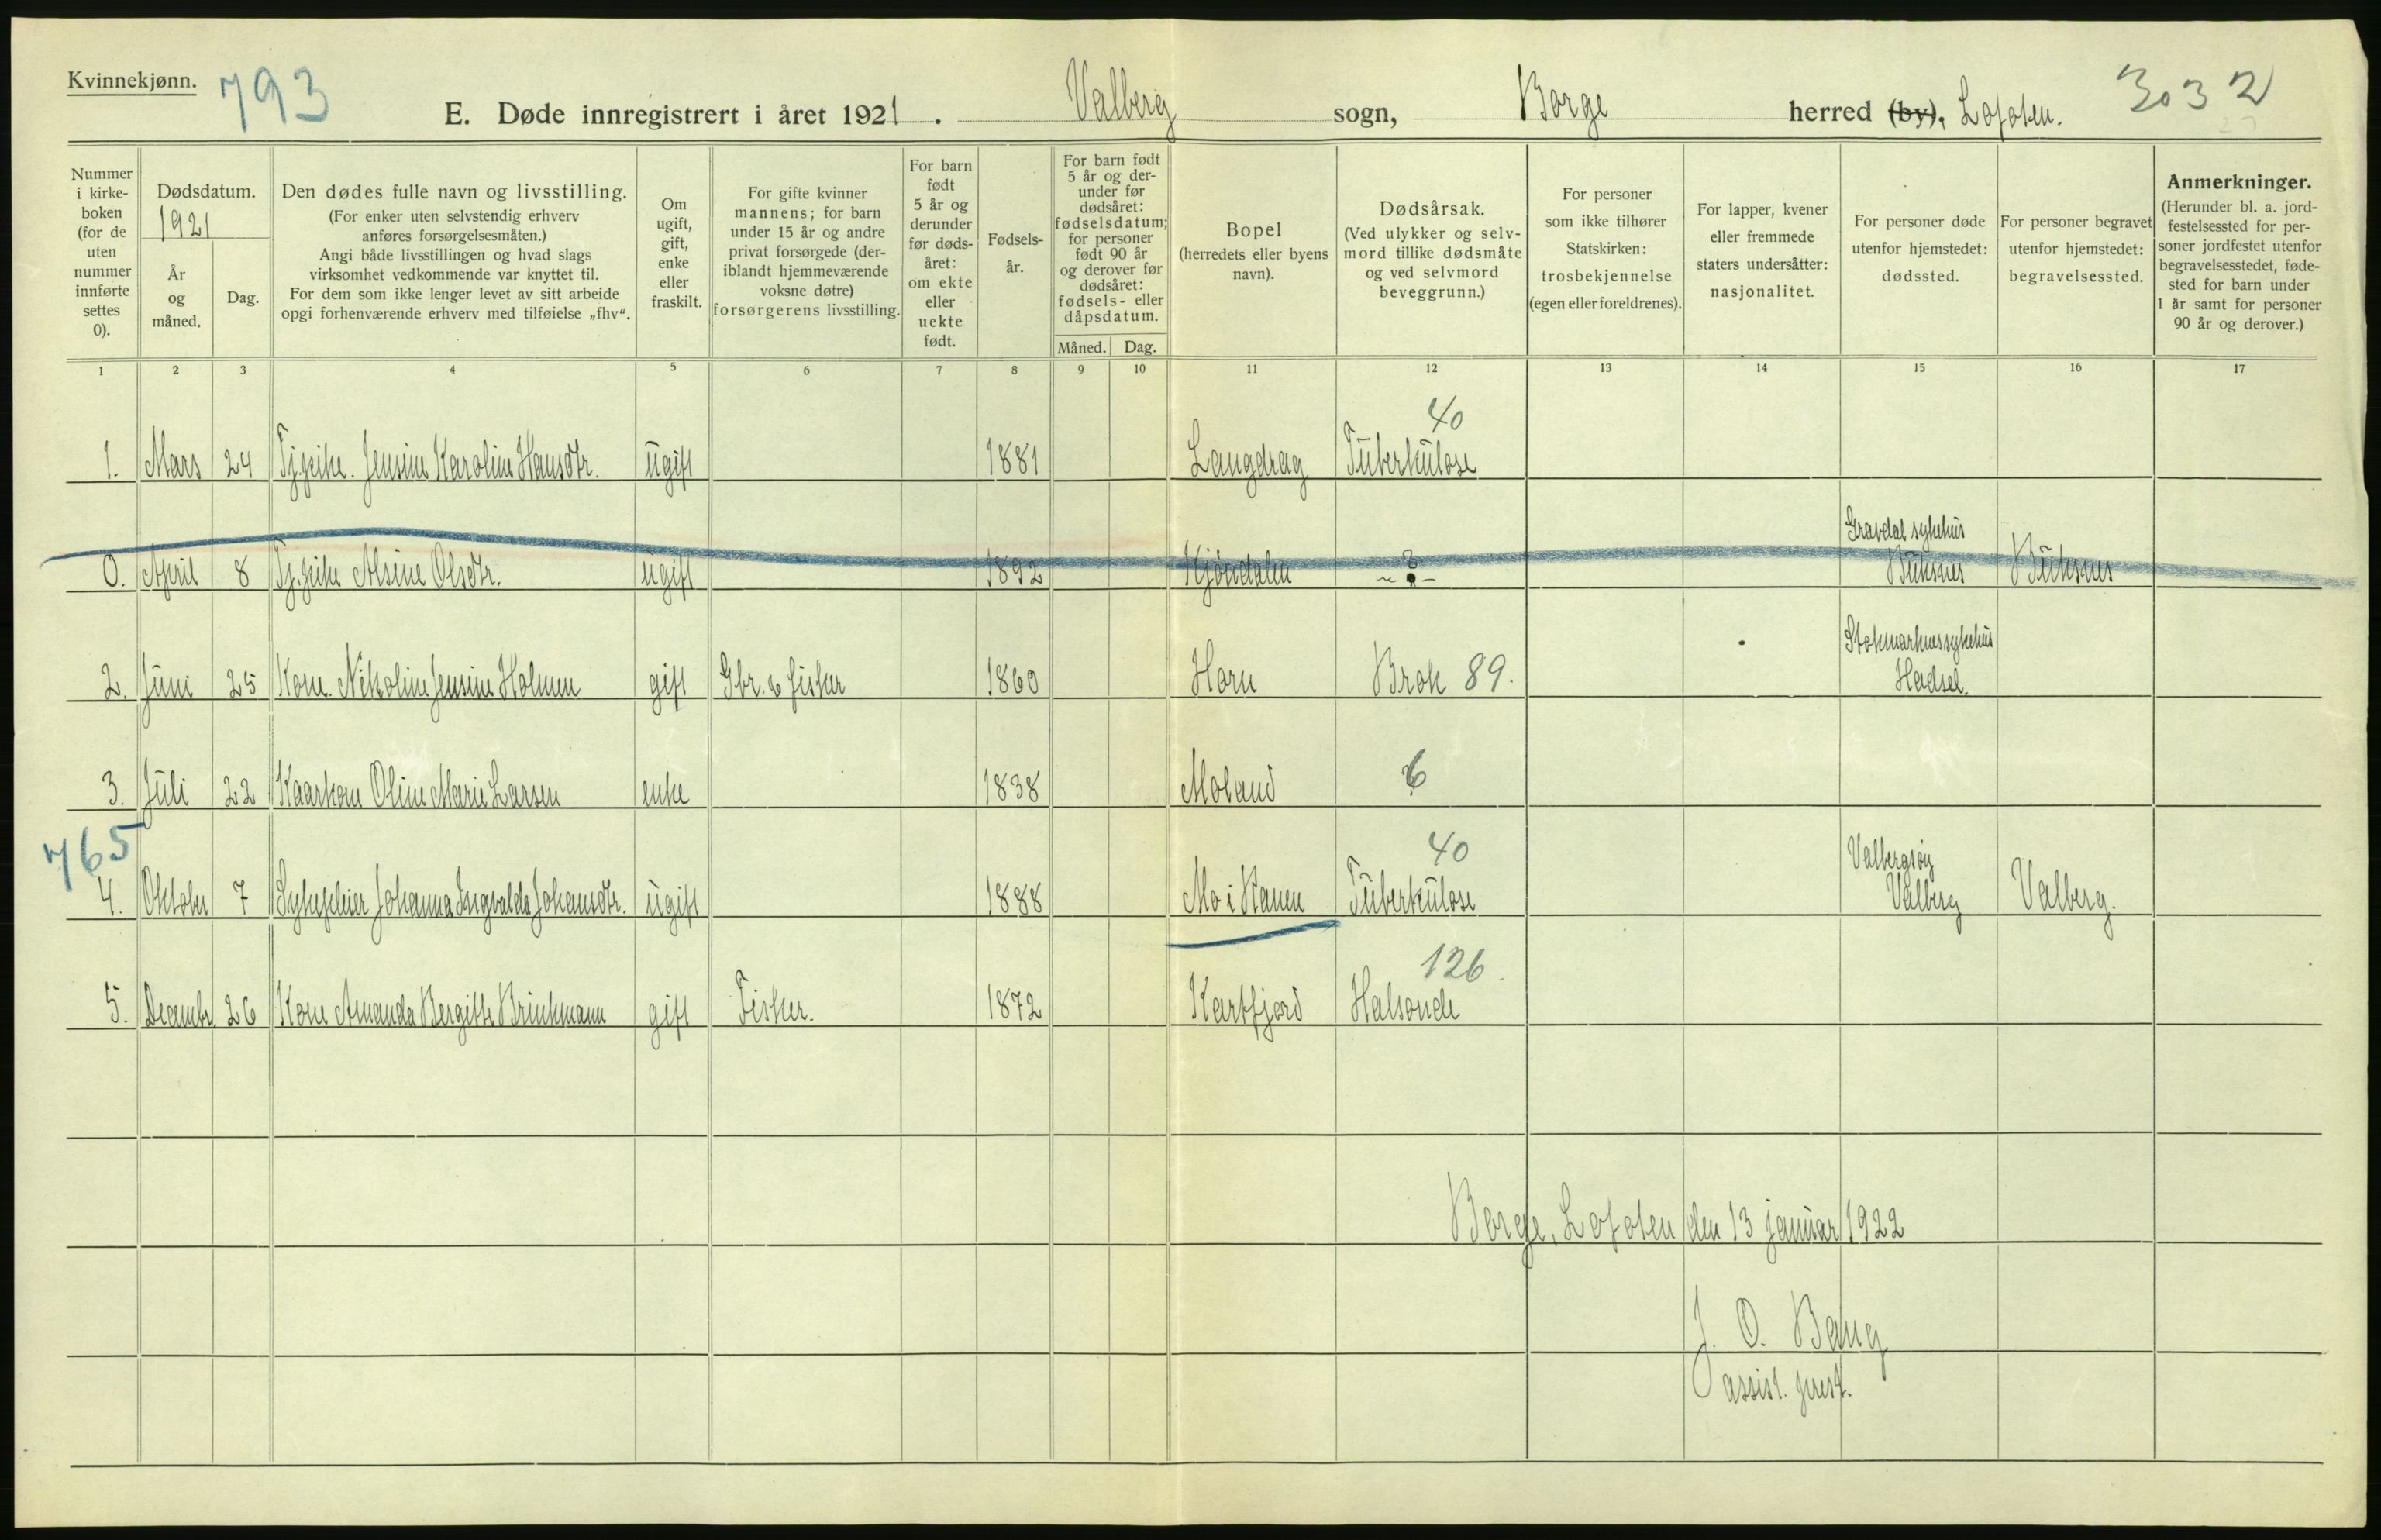 Kvinnekjønn.
793
E. Døde innregistrert i året 1921. Valberg sogn, Borge herred (by), Lofoten.
3032
Nummer i kirke-boken (for de uten nummer innførte settes 0).
Dødsdatum.
1921
År og måned.
Dag.
Den dødes fulle navn og livsstilling.
(For enker uten selvstendig erhverv anføres forsørgelsesmåten.)
Angi både livsstillingen og hvad slags virksomhet vedkommende var knyttet til.
For dem som ikke lenger levet av sitt arbeide opgi forhenværende erhverv med tilføielse „fhv“.
Om ugift, gift, enke eller fraskilt.
For gifte kvinner mannens; for barn under 15 år og andre privat forsørgede (deriblandt hjemmeværende voksne døtre) forsørgerens livsstilling.
For barn født 5 år og derunder før døds-året: om ekte eller uekte født.
Fødsels-år.
For barn født 5 år og der-under før dødsåret: fødselsdatum; for personer født 90 år og derover før dødsåret: fødsels- eller dåpsdatum.
Måned. Dag.
Bopel (herredets eller byens navn).
Dødsårsak.
(Ved ulykker og selv-mord tillike dødsmåte og ved selvmord beveggrunn.)
For personer som ikke tilhører Statskirken: trosbekjennelse (egen eller foreldrenes).
For lapper, kvener eller fremmede staters undersåtter: nasjonalitet.
For personer døde utenfor hjemstedet: dødssted.
For personer begravet utenfor hjemstedet: begravelsessted.
Anmerkninger.
(Herunder bl. a. jord-festelsessted for per-soner jordfestet utenfor begravelsesstedet, føde-sted for barn under 1 år samt for personer 90 år og derover.)
1 2 3 4 5 6 7 8 9 10 11 12 13 14 15 16 17
40
1. Mars 24 Tj.pike. Jensine Karoline Hansdtr. ugift 1881 Langdrag Tuberkulose
Gravdal sykehus
0. April 8 Tj.pike Alsine Olsdtr. ugift 1892 Kjøndalen - ? - Buksnes Buksnes
Stokmarknes sykehus
2. Juni 25 Kone. Nikoline Jensine Holmen gift Gbr. & fisker 1860 Horn Brok 89. Hadsel.
3. Juli 22 Kaarkone Oline Marie Larsen enke 1838 Moland
765
40
Valbergsøy
4. Oktober 7 Sykepleier Johanna Ingvalda Johansdtr. ugift 1888 Mo i Ranen Tuberkulose Valberg Valberg.
126.
5. Decembr. 26 Kone Amanda Bergitte Brinkmann gift Fisker. 1872 Kartfjord Halsonde
Borge, Lofoten den 13 januar 1922
J. O. Bang
assist. prest.